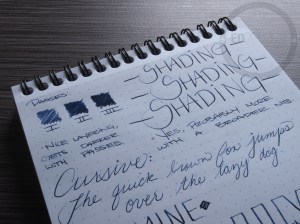 PASSES:
I II III
SHADING
SHADING
SHADING
NICE LAYERING,
GETS DARKER
WITH PASSES.
YES, PROBABLY MORE
WITH A BROADER NIB
Cursive:
The quick brown fox jumps
over the lazy dog